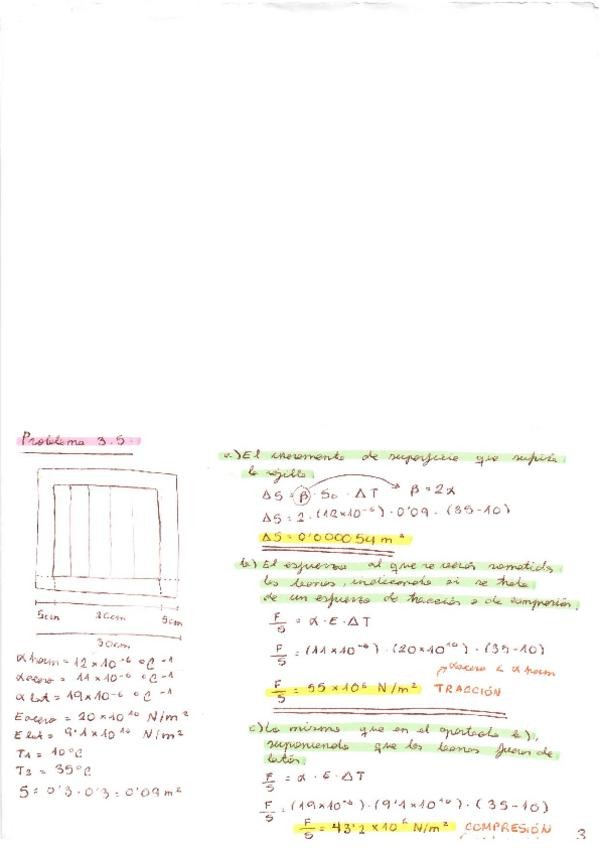 Problema 3.5.
5cm 20cm 5cm
30cm
α horm = 12×10⁻⁶ °C⁻¹
α acero = 11×10⁻⁶ °C⁻¹
α lat = 19×10⁻⁶ °C⁻¹
E acero = 20×10¹⁰ N/m²
E lat = 9'1×10¹⁰ N/m²
T1 = 10°C
T2 = 35°C
S = 0'3 · 0'3 = 0'09 m²
a) El incremento de superficie que sufrirá
la rejilla.
ΔS = β · S₀ · ΔT → β = 2α
ΔS = 2 · (12×10⁻⁶) · 0'09 · (35-10)
ΔS = 0'000054 m²
b) El esfuerzo al que se verán sometidas
las barras, indicando si se trata
de un esfuerzo de tracción o de compresión.
F/S = α · E · ΔT
F/S = (11×10⁻⁶) · (20×10¹⁰) · (35-10)
α acero < α horm
F/S = 55×10⁶ N/m² TRACCIÓN
c) Lo mismo que en el apartado b),
suponiendo que las barras fueran de
latón.
F/S = α · E · ΔT
F/S = (19×10⁻⁶) · (9'1×10¹⁰) · (35-10)
F/S = 43'2×10⁶ N/m² COMPRESIÓN
3